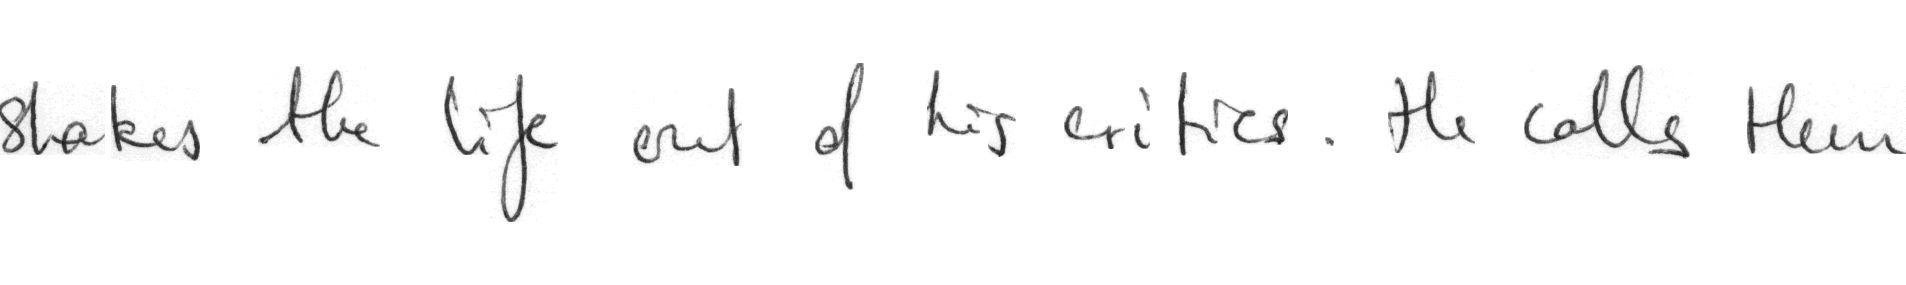 shakes the life out of his critics. He calls them